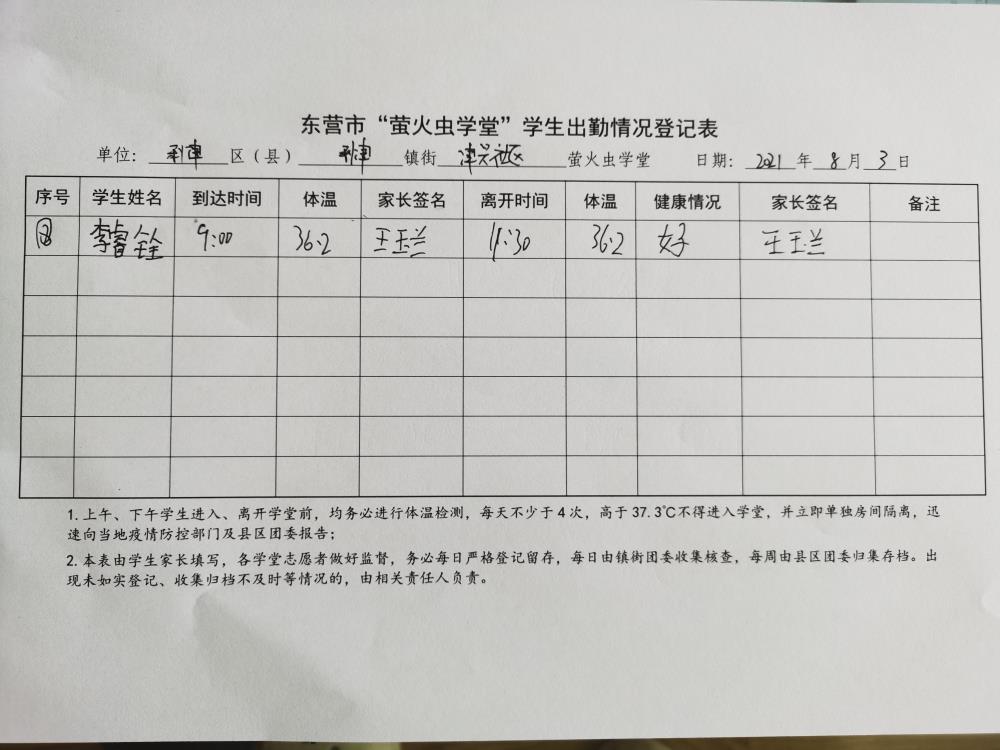 东营市“萤火虫学堂”学生出勤情况登记表
单位：利津区（县）利津镇街津兴社区萤火虫学堂 日期：2021年8月3日
序号 学生姓名 到达时间 体温 家长签名 离开时间 体温 健康情况 家长签名 备注
李睿铨 9:00 36.2 王玉兰 11:30 36.2 好 王玉兰
1.上午、下午学生进入、离开学堂前，均务必进行体温检测，每天不少于4次，高于37.3℃不得进入学堂，并立即单独房间隔离，迅
速向当地疫情防控部门及县区团委报告；
2.本表由学生家长填写，各学堂志愿者做好监督，务必每日严格登记留存，每日由镇街团委收集核查，每周由县区团委归集存档。出
现未如实登记、收集归档不及时等情况的，由相关责任人负责。